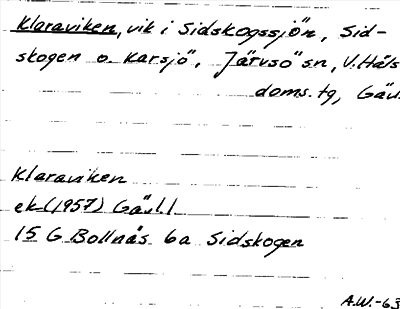 Klaraviken, vik i Sidskogssjön, Sid-
skogen o. Karsjö, Järvsö sn, V. Häls
doms. tg, Gäv.
Klaraviken
ek (1957) Gävl.l
15 G Bollnäs 6a Sidskogen
A.W.-63